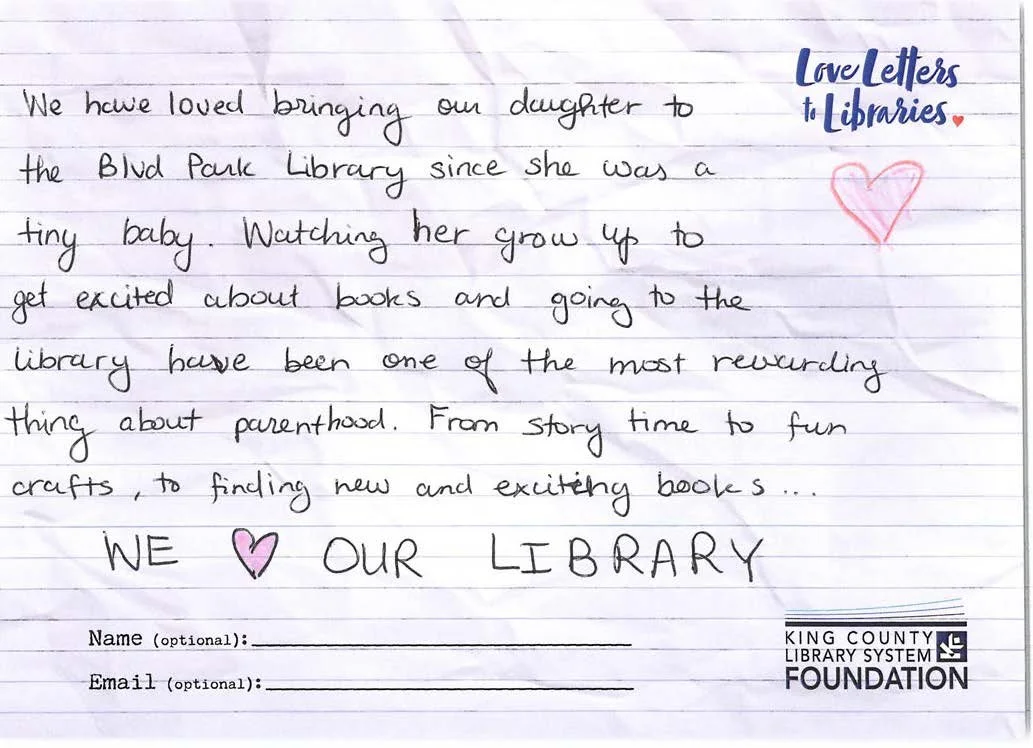 Love Letters
to Libraries.
We have loved bringing our daughter to
the Blvd Park Library since she was a
tiny baby. Watching her grow up to
get excited about books and going to the
library have been one of the most rewarding
thing about parenthood. From story time to fun
crafts, to finding new and exciting books...
WE ♥ OUR LIBRARY
Name (optional):
Email (optional):
KING COUNTY
LIBRARY SYSTEM
FOUNDATION